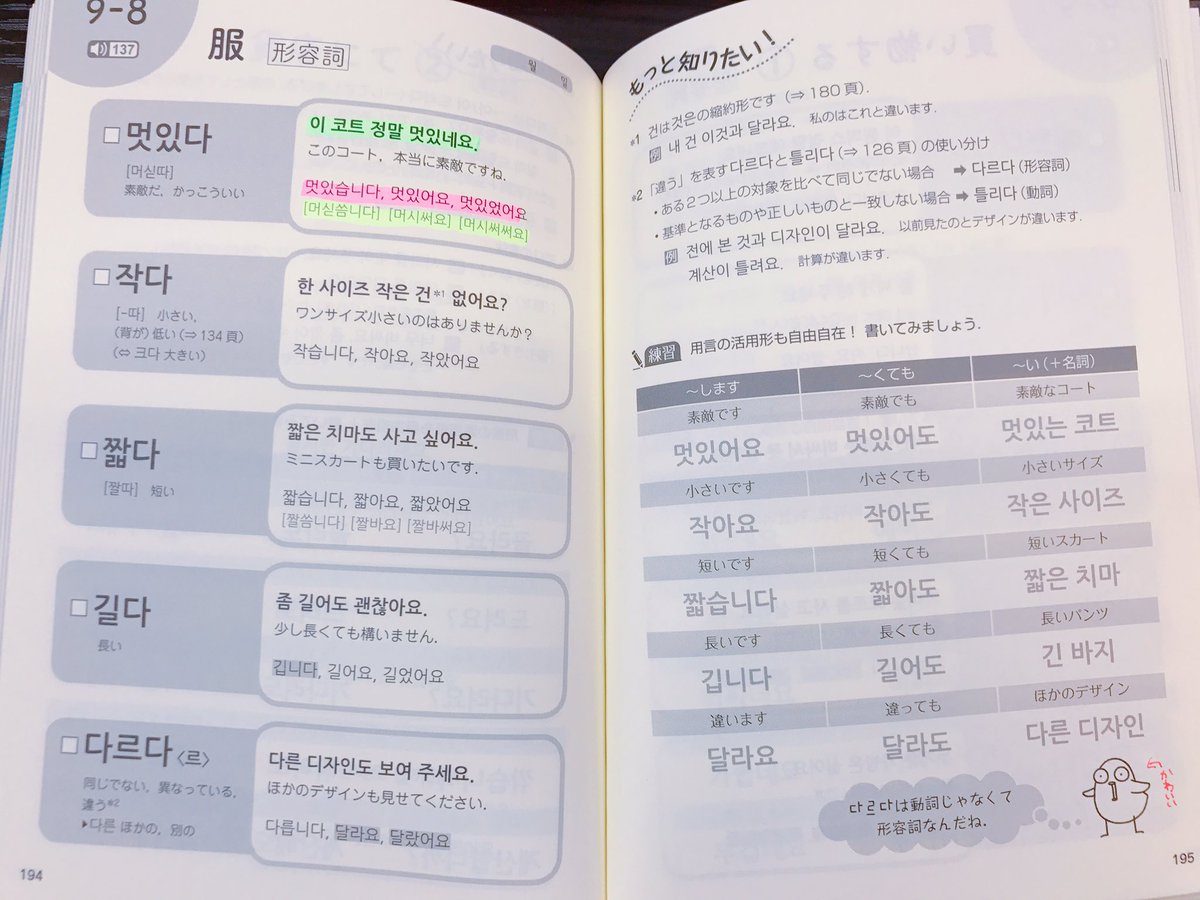 9-8
137
服 形容詞
월 일
멋있다
[머싣따]
素敵だ，かっこういい
이 코트 정말 멋있네요.
このコート，本当に素敵ですね．
멋있습니다, 멋있어요, 멋있었어요
[머싣씀니다] [머시써요] [머시써써요]
작다
[-따] 小さい，
(背が) 低い (⇒134頁)
(⇔ 크다 大きい)
한 사이즈 작은 건*1 없어요?
ワンサイズ小さいのはありませんか？
작습니다, 작아요, 작았어요
짧다
[짤따] 短い
짧은 치마도 사고 싶어요.
ミニスカートも買いたいです．
짧습니다, 짧아요, 짧았어요
[짤씀니다] [짤바요] [짤바써요]
길다
長い
좀 길어도 괜찮아요.
少し長くても構いません．
깁니다, 길어요, 길었어요
다르다〈르〉
同じでない，異なっている，
違う*2
▶다른 ほかの，別の
다른 디자인도 보여 주세요.
ほかのデザインも見せてください．
다릅니다, 달라요, 달랐어요
194
もっと知りたい！
*1 건は것은の縮約形です (⇒180頁)．
例 내 건 이것과 달라요． 私のはこれと違います．
*2 「違う」を表す다르다と틀리다 (⇒126頁) の使い分け
・ある2つ以上の対象を比べて同じでない場合 ➡ 다르다 (形容詞)
・基準となるものや正しいものと一致しない場合 ➡ 틀리다 (動詞)
例 전에 본 것과 디자인이 달라요． 以前見たのとデザインが違います．
계산이 틀려요． 計算が違います．
練習 用言の活用形も自由自在！ 書いてみましょう．
～します ～くても ～い (＋名詞)
素敵です 素敵でも 素敵なコート
멋있어요 멋있어도 멋있는 코트
小さいです 小さくても 小さいサイズ
작아요 작아도 작은 사이즈
短いです 短くても 短いスカート
짧습니다 짧아도 짧은 치마
長いです 長くても 長いパンツ
깁니다 길어도 긴 바지
違います 違っても ほかのデザイン
달라요 달라도 다른 디자인
다르다は動詞じゃなくて
形容詞なんだね．
かわいい
195